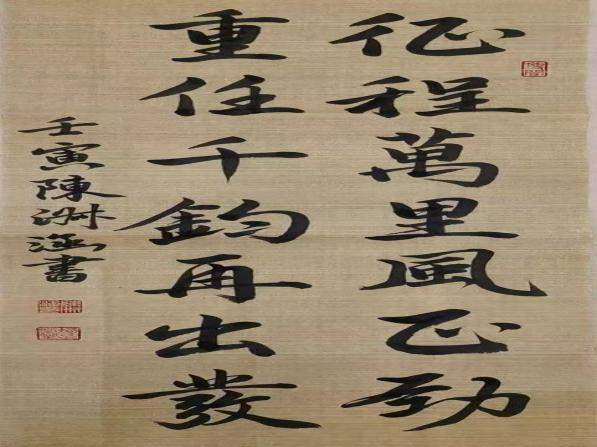 征程萬里風正勁
重任千鈞再出發
壬寅陳洲涵書